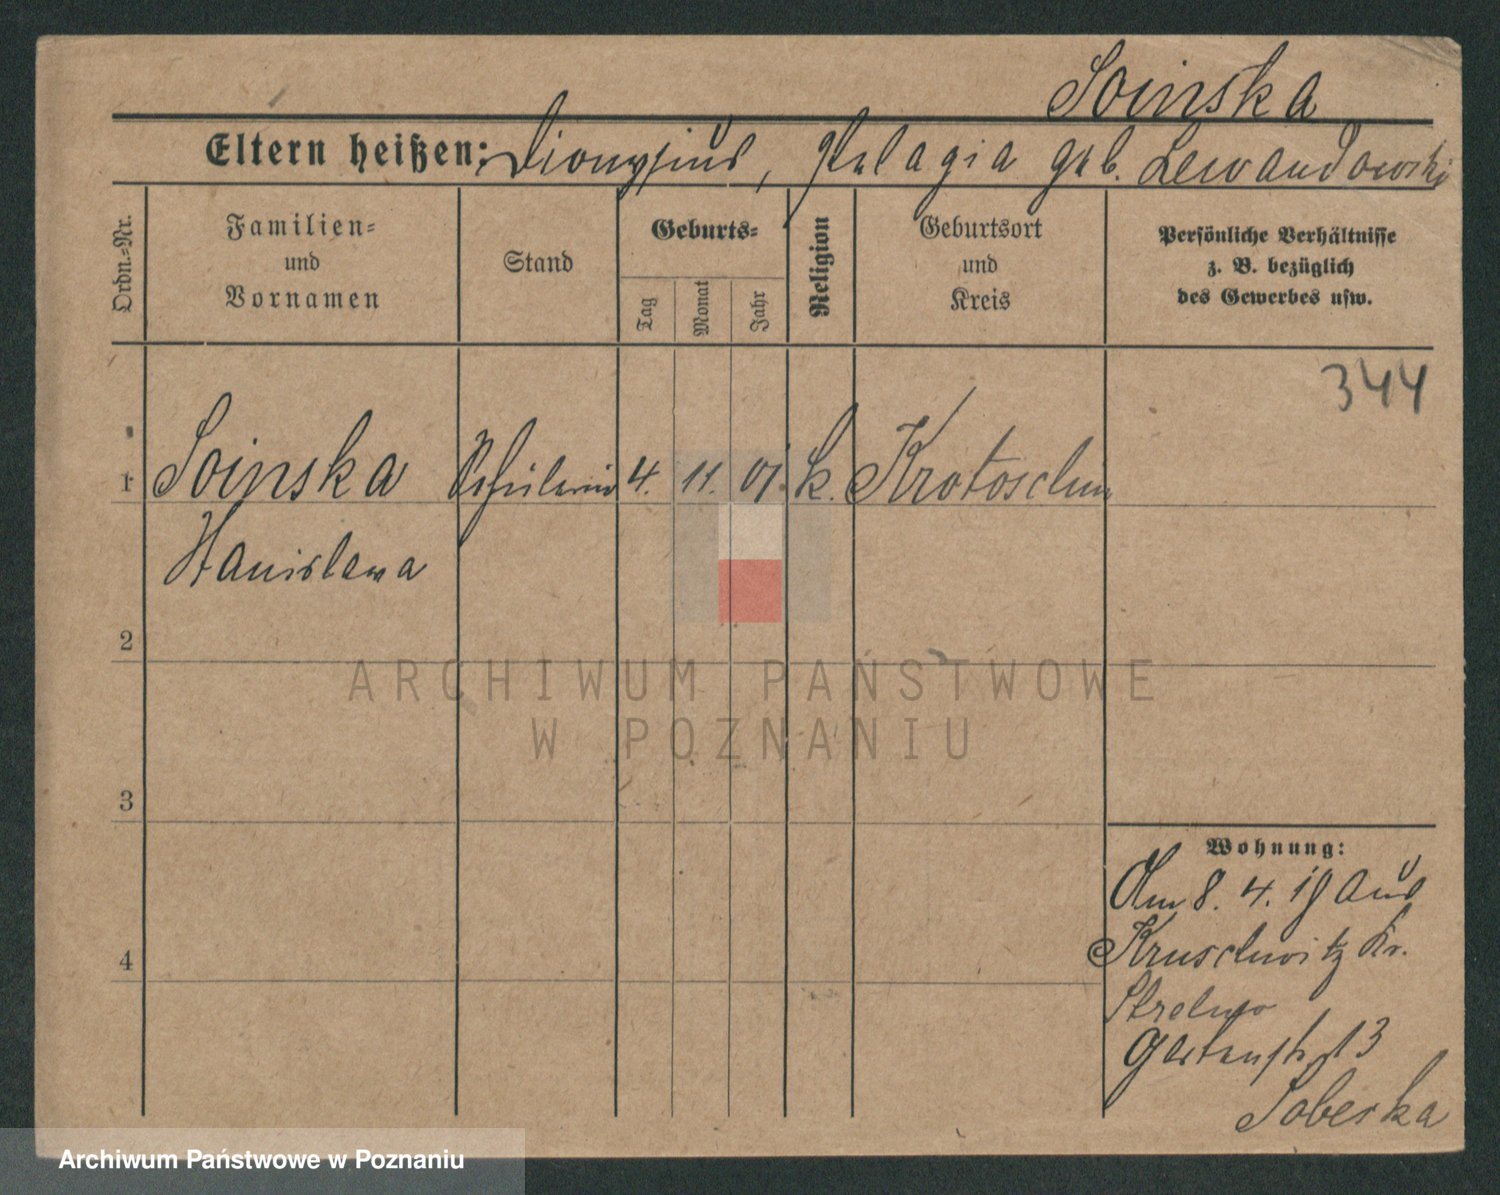 Soinska
Eltern heißen: Dionysius, Pelagia geb. Lewandowski
Ordn.-Nr.
Familien-
und
Vornamen
Stand
Geburts-
Tag
Monat
Jahr
Religion
Geburtsort
und
Kreis
Persönliche Verhältnisse
z. B. bezüglich
des Gewerbes usw.
344
1 Soinska Schülerin 4. 11. 01. k. Krotoschin
Stanislawa
2
ARCHIWUM PAŃSTWOWE
W POZNANIU
3
4
Wohnung:
Am 8. 4. 19 aus
Kruschwitz Kr.
Strelno
Gartenstr 13
Soberka
Archiwum Państwowe w Poznaniu